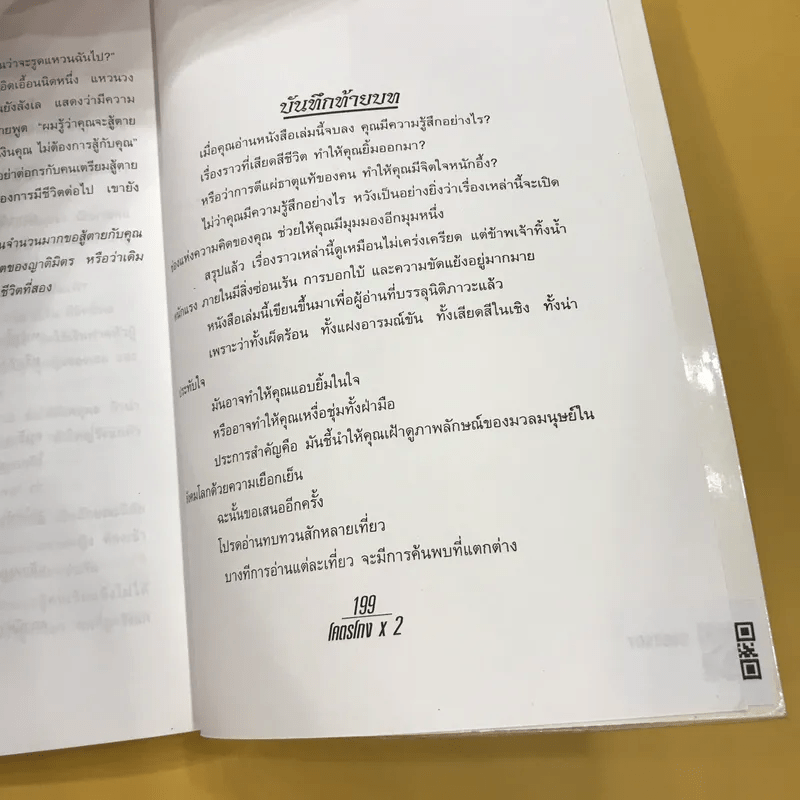 นว่าจะรูดแหวนฉันไป?"
อิดเอื้อนนิดหนึ่ง แหวนวง
นยังลังเล แสดงว่ามีความ
ายพูด "ผมรู้ว่าคุณจะสู้ตาย
เงินคุณ ไม่ต้องการสู้กับคุณ"
อย่าต่อกรกับคนเตรียมสู้ตาย
องการมีชีวิตต่อไป เขายัง
นจำนวนมากขอสู้ตายกับคุณ
ตของญาติมิตร หรือว่าเดิม
ชีวิตที่สอง
บันทึกท้ายบท
เมื่อคุณอ่านหนังสือเล่มนี้จบลง คุณมีความรู้สึกอย่างไร?
เรื่องราวที่เสียดสีชีวิต ทำให้คุณยิ้มออกมา?
หรือว่าการตีแผ่ธาตุแท้ของคน ทำให้คุณมีจิตใจหนักอึ้ง?
ไม่ว่าคุณมีความรู้สึกอย่างไร หวังเป็นอย่างยิ่งว่าเรื่องเหล่านี้จะเปิด
ช่องแห่งความคิดของคุณ ช่วยให้คุณมีมุมมองอีกมุมหนึ่ง
สรุปแล้ว เรื่องราวเหล่านี้ดูเหมือนไม่เคร่งเครียด แต่ข้าพเจ้าทิ้งน้ำ
หนักแรง ภายในมีสิ่งซ่อนเร้น การบอกใบ้ และความขัดแย้งอยู่มากมาย
หนังสือเล่มนี้เขียนขึ้นมาเพื่อผู้อ่านที่บรรลุนิติภาวะแล้ว
เพราะว่าทั้งเผ็ดร้อน ทั้งแฝงอารมณ์ขัน ทั้งเสียดสีในเชิง ทั้งน่า
ประทับใจ
มันอาจทำให้คุณแอบยิ้มในใจ
หรืออาจทำให้คุณเหงื่อชุ่มทั้งฝ่ามือ
ประการสำคัญคือ มันชี้นำให้คุณเฝ้าดูภาพลักษณ์ของมวลมนุษย์ใน
สังคมโลกด้วยความเยือกเย็น
ฉะนั้นขอเสนออีกครั้ง
โปรดอ่านทบทวนสักหลายเที่ยว
บางทีการอ่านแต่ละเที่ยว จะมีการค้นพบที่แตกต่าง
199
โคตรโกง x 2